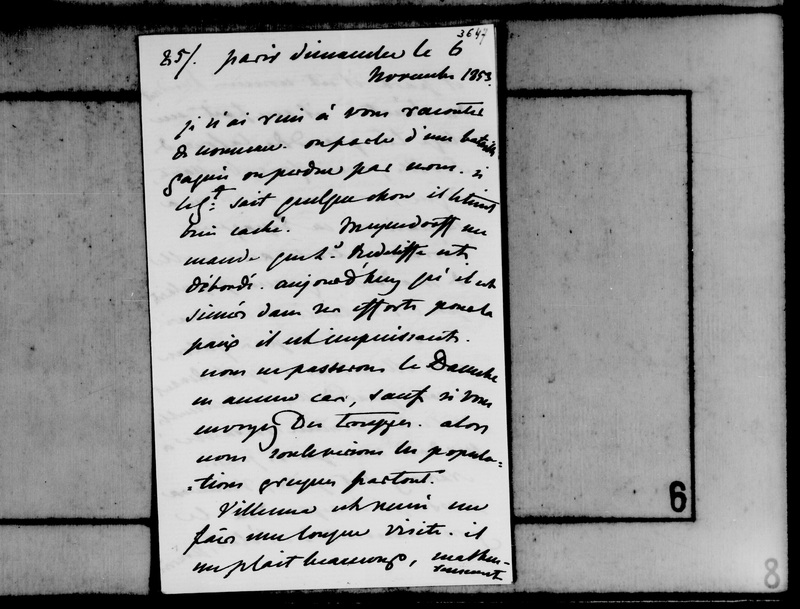 3647
85/. paris dimanche le 6
Novembre 1853.
je n'ai rien à vous raconter
de nouveau. on parle d'une bataille
gagnée ou perdue par nous. si
le g^t sait quelque chose il le tient
bien caché. Meyendorff me
mande que L^d Redcliffe est
débordé. aujourd'huy qu'il est
sincère dans ses efforts pour la
paix il est impuissant.
nous ne passerons le Danube
en aucun cas, sauf si vous
envoyez des trouppes. alors
nous souleverions les popula-
-tions grecques partout.
Villema est venu me
faire une longue visite. il
me plait beaucoup, malheu-
reusement
6
8